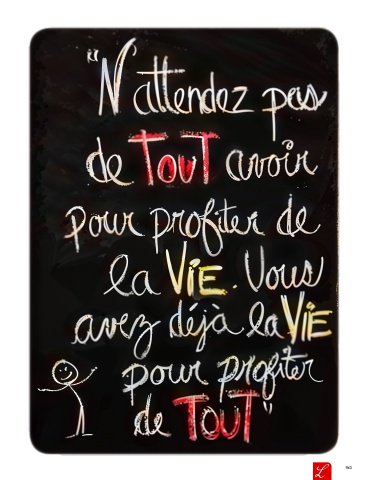 "N'attendez pas
de TOUT avoir
pour profiter de
la VIE. Vous
avez déjà la VIE
pour profiter
de TOUT"
L